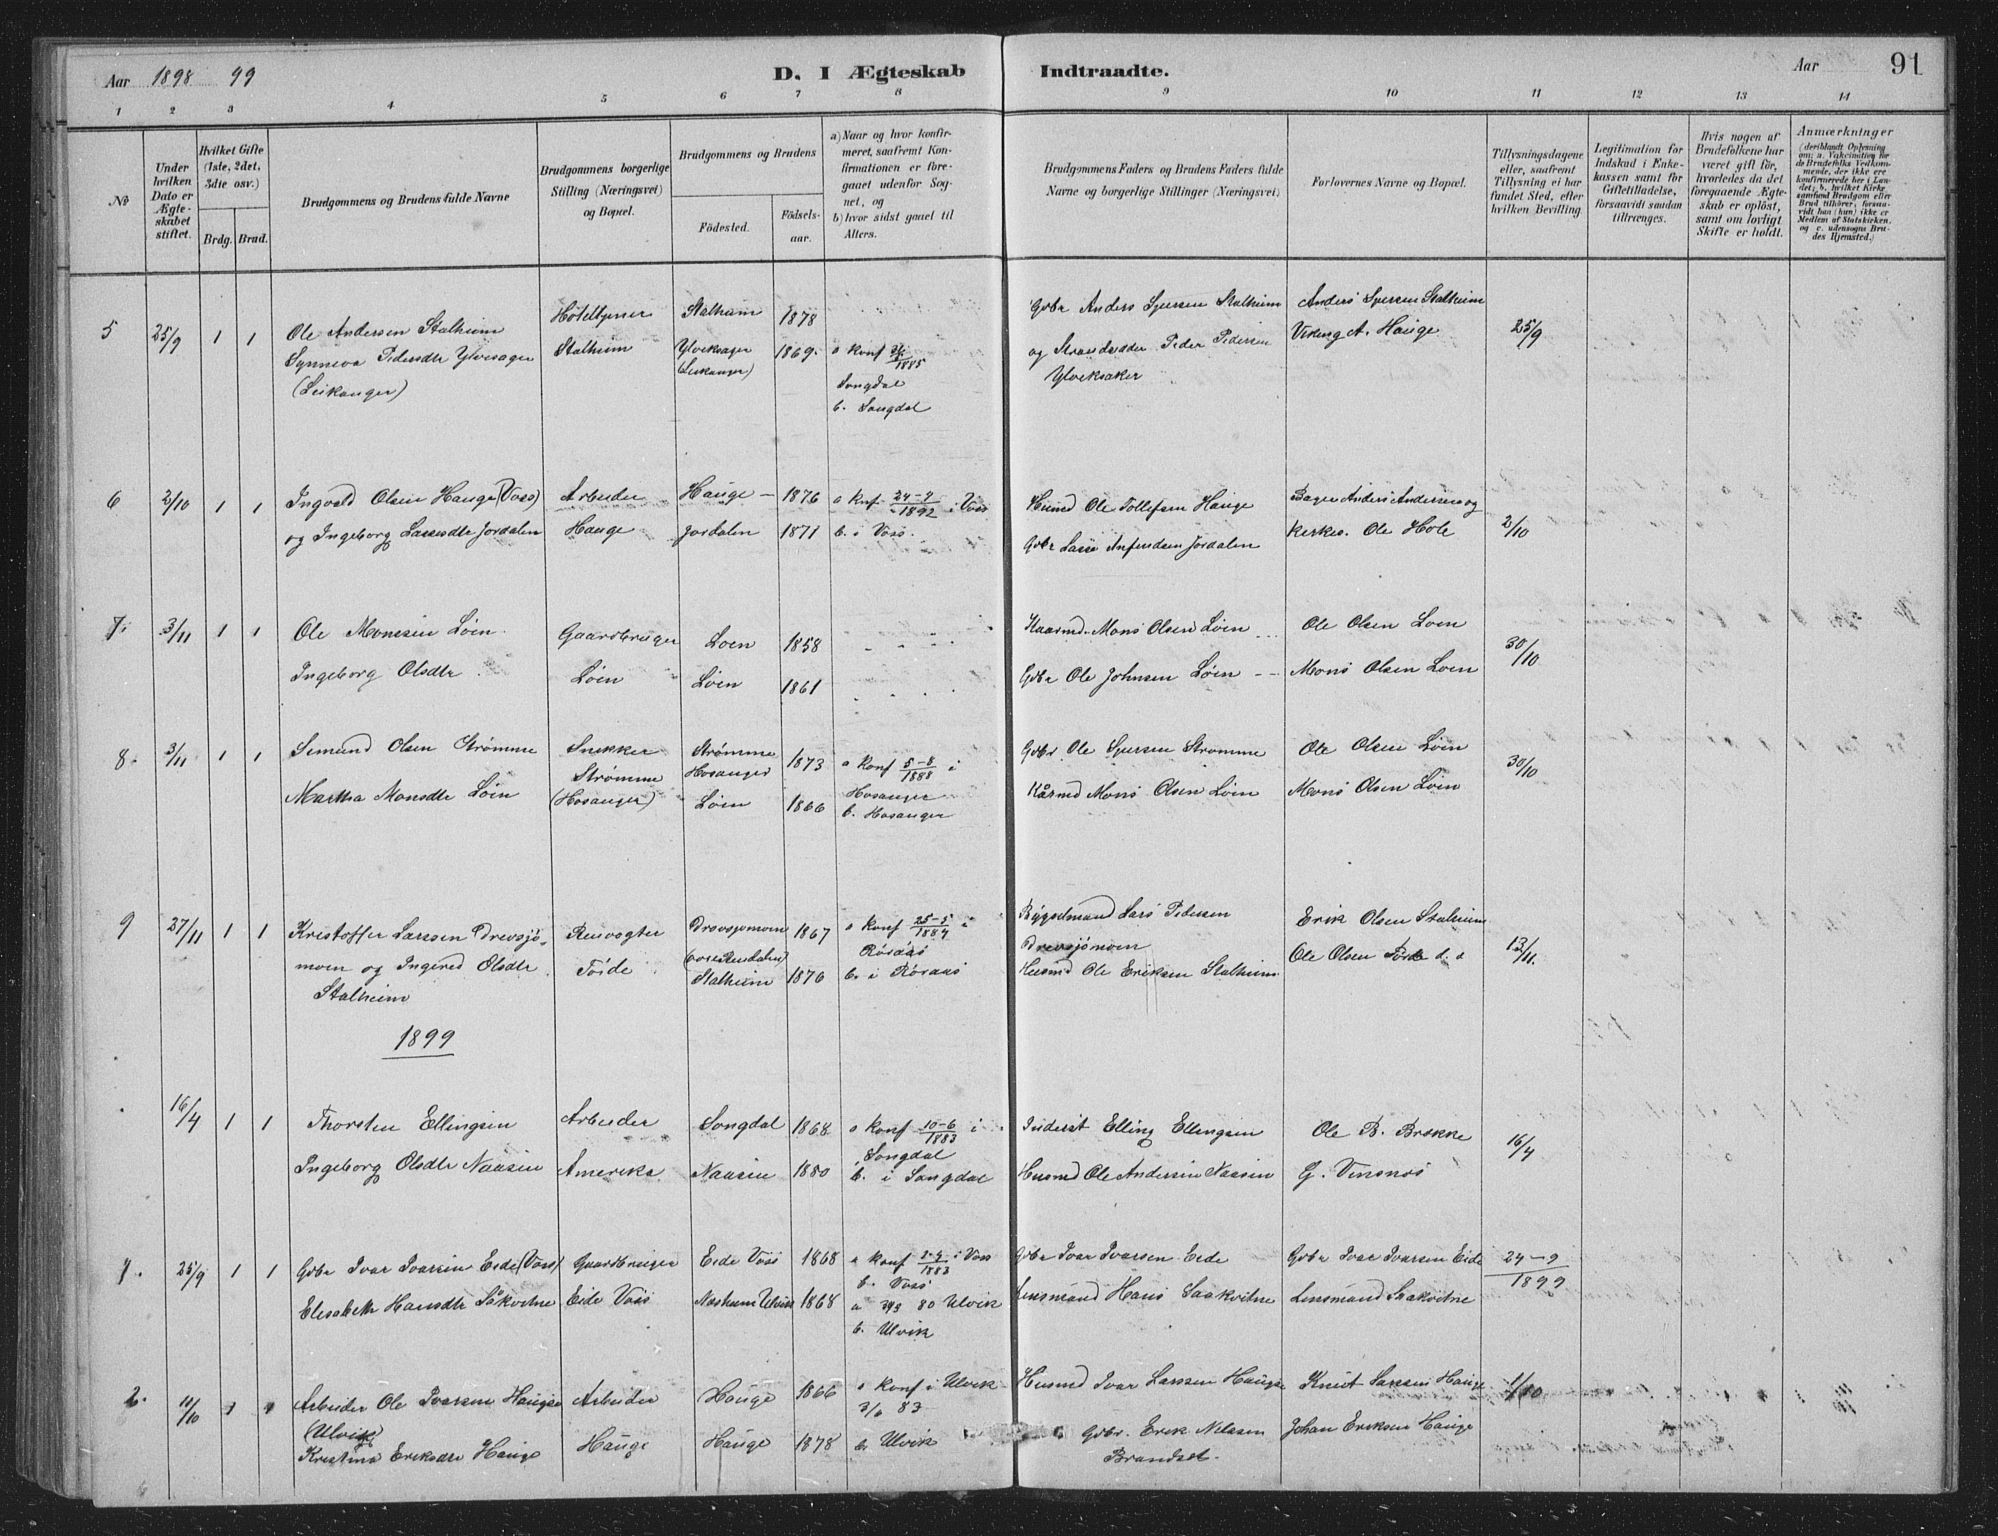 Aar 1898 99
D. I Ægteskab Indtraadte.
Aar 91
1 2 3 4 5 6 7 8 9 10 11 12 13 14
No
Under hvilken Dato er Ægteskabet stiftet.
Hvilket Gifte (1ste, 2det, 3die osv.)
Brdg. Brud.
Brudgommens og Brudens fulde Navne
Brudgommens borgerlige Stilling (Næringsvei) og Bopæl.
Brudgommens og Brudens
Födested. Födselsaar.
a) Naar og hvor konfirmeret, saafremt Konfirmationen er foregaaet udenfor Sognet, og
b) hvor sidst gaaet til Alters.
Brudgommens Faders og Brudens Faders fulde Navne og borgerlige Stillinger (Næringsvei).
Forlovernes Navne og Bopæl.
Tillysningsdagene eller, saafremt Tillysning ei har fundet Sted, efter hvilken Bevilling.
Legitimation for Indskud i Enkekassen samt for Giftetilladelse, forsaavidt saadan tiltrænges.
Hvis nogen af Brudefolkene har været gift för, hvorledes da det foregaaende Ægteskab er oplöst, samt om lovligt Skifte er holdt.
Anmærkninger (deriblandt Oplysning om: a. Vakcination for de Brudefolks Vedkommende, der ikke ere konfirmerede her i Landet; b. hvilket Kirkesamfund Brudgom eller Brud tilhörer, forsaavidt han (hun) ikke er Medlem af Statskirken. og c. udensogns Brudes Hjemsted.)
5 25/9 1 1
Ole Andersen Stalheim
Synneva Pedersdtr Ylvesager
(Leikanger)
Stalheim
Stalheim 1878
Ylveksager 1869.
(Leikanger)
a konf
1885
Songdal
b. Songdal
Gdbr Anders Sjursen Stalheim
og Strandsidder Peder Pedersen
Ylveksaker
Anders Sjursen Stalheim
Viking A. Hauge
25/9
6 2/10 1 1
Ingvald Olsen Hauge (Voss)
og Ingeborg Larsdtr Jordalen
Arbeider
Hauge
Hauge 1876
Jordalen 1871
a konf 24-9 1892 i Voss
b. i Voss.
Husmd Ole Tollefsen Hauge
Gdbr Lars Anfindsen Jordalen
Bager Anders Andersen og
Kirkes. Ole Hole
2/10
7. 3/11 1 1
Ole Monssen Löin
Ingeborg Olsdtr
Gaardbruger
Löin
Loen 1858
Löin 1861
Kaarmd. Mons Olsen Löin
Gdbr Ole Johnsen Löin
Ole Olsen Loen
Mons Olsen Loen
30/10
8. 3/11 1 1
Simund Olsen Strømme
Martha Monsdtr Löin
Snekker
Strømme
(Hosanger)
Strømme 1873
Hosanger
Löin 1866
a konf 5-8 1888 i
Hosanger
b. Hosanger
Gdbr. Ole Sjursen Strømme
Kårmd Mons Olsen Löin
Ole Olsen Löin
Mons Olsen Löin
30/10
9 27/11 1 1
Kristoffer Larssen Drevsjö-
moen og Ingered Olsdtr
Stalheim
Renvogter
Drevsjomoen 1867
Stalheim 1876
a konf 25-5 1884 i
Röraas
b. i Röraas
Bygselmand Lars Pedersen
Drevsjömoen
Husmd Ole Eriksen Stalheim
Erik Olsen Stalheim
Ole Olsen
13/11.
1899
16/4 1 1
Thorsten Ellingsen
Ingeborg Olsdtr Naasen
Arbeider
Amerika
Songdal 1868
Naasen 1880
a konf 10-6 1883 i
Songdal
b. i Songdal
Inderst Elling Ellingsen
Husmd Ole Andersen Naasen
Ole B. Brekke
G. Vinsnes
16/4
1. 25/9 1 1
Gdbr Ivar Ivarsen Eide (Voss)
Elisabeth Hansdtr Såkvitne
Gaardbruger
Eide Voss
Eide Voss 1868
Ulvik 1868
a konf 1883 i Voss
b. Voss
a. 80 Ulvik
b. Ulvik
Gdbr Ivar Ivarsen Eide
Lensmand Hans Saakvitne
Gdbr Ivar Ivarsen Eide
Lensmand Saakvitne
24-9
1899
2. 10/10 1 1
Arbeider Ole Ivarsen Hauge
(Ulvik)
Kristina Eriksdtr Hauge
Arbeider
Hauge
Hauge 1866
Hauge 1878
a konf i Ulvik
3/6 83
b. Ulvik
Husmd Ivar Larssen Hauge
Gdbr. Erik Nilssen
Brandset.
Knut Larssen Hauge
Johan Eriksen Hauge
1/10